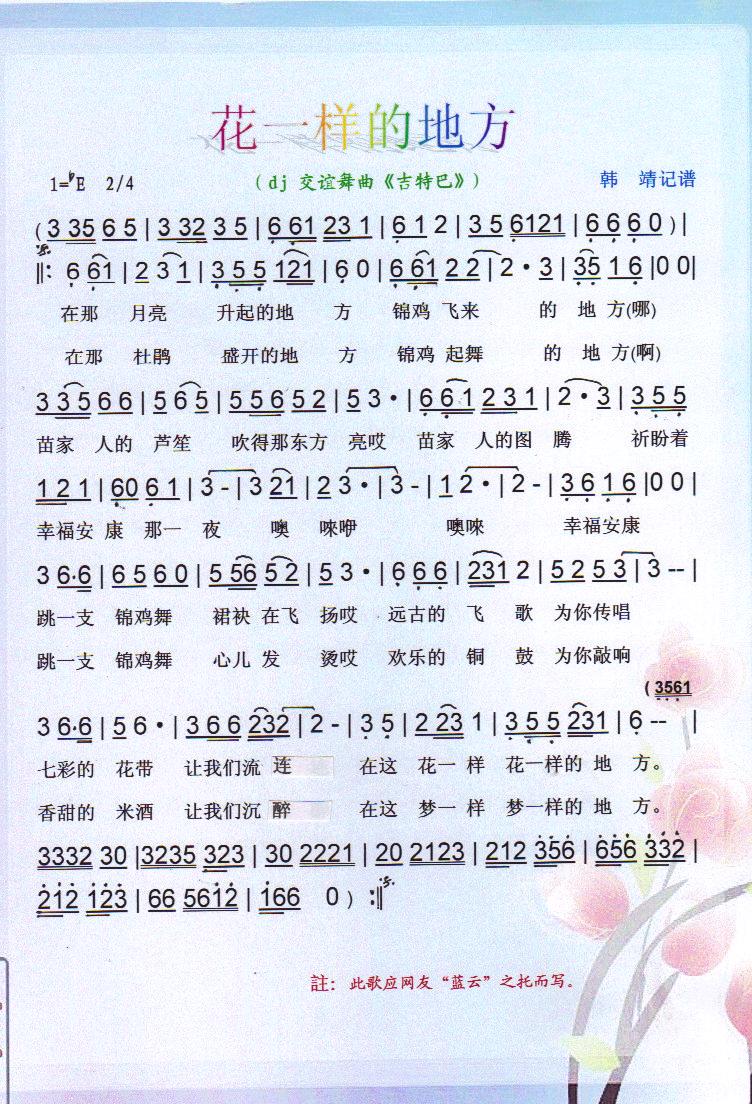 花一样的地方
1=♭E 2/4 （dj 交谊舞曲《吉特巴》） 韩 靖记谱
( 3 35 6 5 | 3 32 3 5 | 6 61 23 1 | 6 1 2 | 3 5 6121 | 6 6 6 0 ) |
‖: 6 61 | 2 3 1 | 3 5 5 121 | 6 0 | 6 61 2 2 | 2 · 3 | 35 1 6 | 0 0 |
在那 月亮 升起的地 方 锦鸡 飞来 的 地 方(哪)
在那 杜鹃 盛开的地 方 锦鸡 起舞 的 地 方(啊)
3 3 5 6 6 | 5 6 5 | 5 5 6 5 2 | 5 3 · | 6 6 1 2 3 1 | 2 · 3 | 3 5 5
苗家 人的 芦笙 吹得那东方 亮哎 苗家 人的图 腾 祈盼着
1 2 1 | 60 6 1 | 3 - | 3 21 | 2 3 · | 3 - | 1 2 · | 2 - | 3 6 1 6 | 0 0 |
幸福安 康 那一 夜 噢 唻咿 噢唻 幸福安康
3 6·6 | 6 5 6 0 | 5 56 5 2 | 5 3 · | 6 6 6 | 231 2 | 5 2 5 3 | 3 -- |
跳一支 锦鸡舞 裙袂 在飞 扬哎 远古的 飞 歌 为你传唱
跳一支 锦鸡舞 心儿 发 烫哎 欢乐的 铜 鼓 为你敲响
( 3561
3 6·6 | 5 6 · | 3 6 6 232 | 2 - | 3 5 | 2 23 1 | 3 5 5 231 | 6 -- |
七彩的 花带 让我们流 连 在这 花一 样 花一样的 地 方。
香甜的 米酒 让我们沉 醉 在这 梦一 样 梦一样的 地 方。
3332 30 | 3235 323 | 30 2221 | 20 2123 | 212 356 | 656 332 |
212 123 | 66 5612 | 166 0 ) :‖
註: 此歌应网友“蓝云”之托而写。